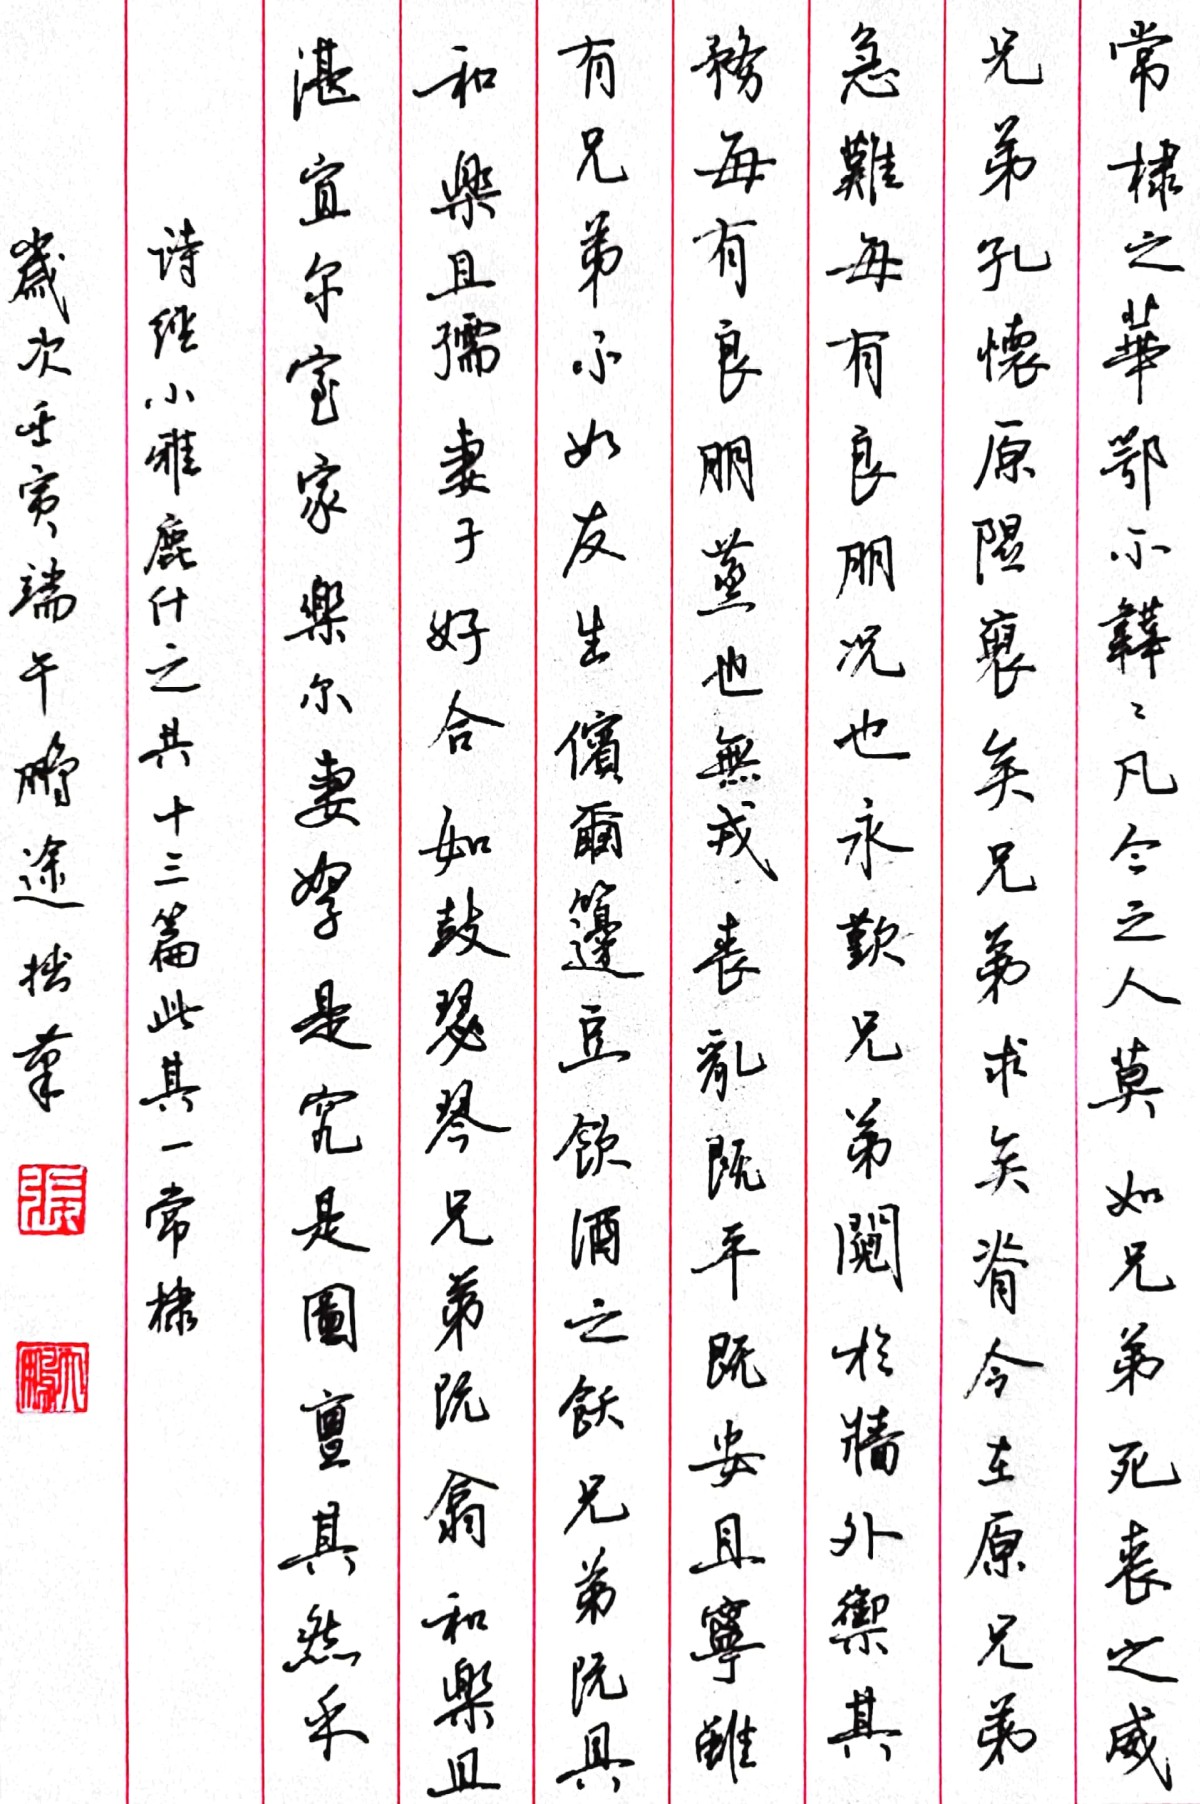 常棣之華鄂不韡〻凡今之人莫如兄弟死喪之威
兄弟孔懷原隰裒矣兄弟求矣脊令在原兄弟
急難每有良朋况也永歎兄弟鬩於牆外禦其
務每有良朋蒸也無戎喪亂既平既安且寧雖
有兄弟不如友生儐爾籩豆飲酒之飫兄弟既具
和樂且孺妻子好合如鼓瑟琴兄弟既翕和樂且
湛宜尔室家樂尔妻孥是究是圖亶其然乎
诗經小雅鹿什之共十三篇此其一常棣
歲次壬寅端午鵬途拙筆
張